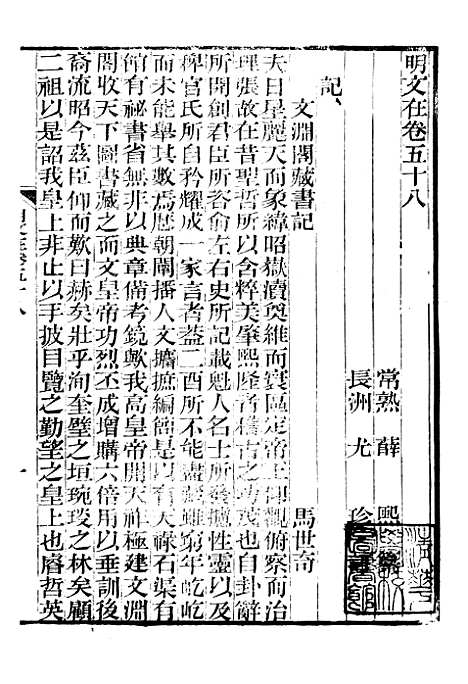 明文在卷五十八
常熟 薛 熙
長洲 尤 珍
記、
文淵閣藏書記 馬世奇
夫日星麗天而象緯昭嶽瀆奠維而寰區定帝王津觀俯察而治
理張故在昔聖哲所以含粹美肇熙隆者僅古之功茂自卦辭
所開創君臣所咨俞左右史所記載魁人名士所發攄性靈以及
稗官氏所自矜耀成一家言者葢二酉所不能盡藏雖窮年屹屹
而未能舉其數焉歷朝闡播人文摭編韶是以有天祿石渠有
館有祕書省無非以典章備考鏡歟我高皇帝開天祚極建文淵
閣收天下圖書藏之而文皇帝功烈丕成增購六倍用以垂訓後
裔流昭今茲臣仰而歎曰赫矣壯乎洵奎璧之垣琬琰之林矣顧
二祖以是詔我皇上非止以手披目覽之勤望之皇上也睿哲英
一